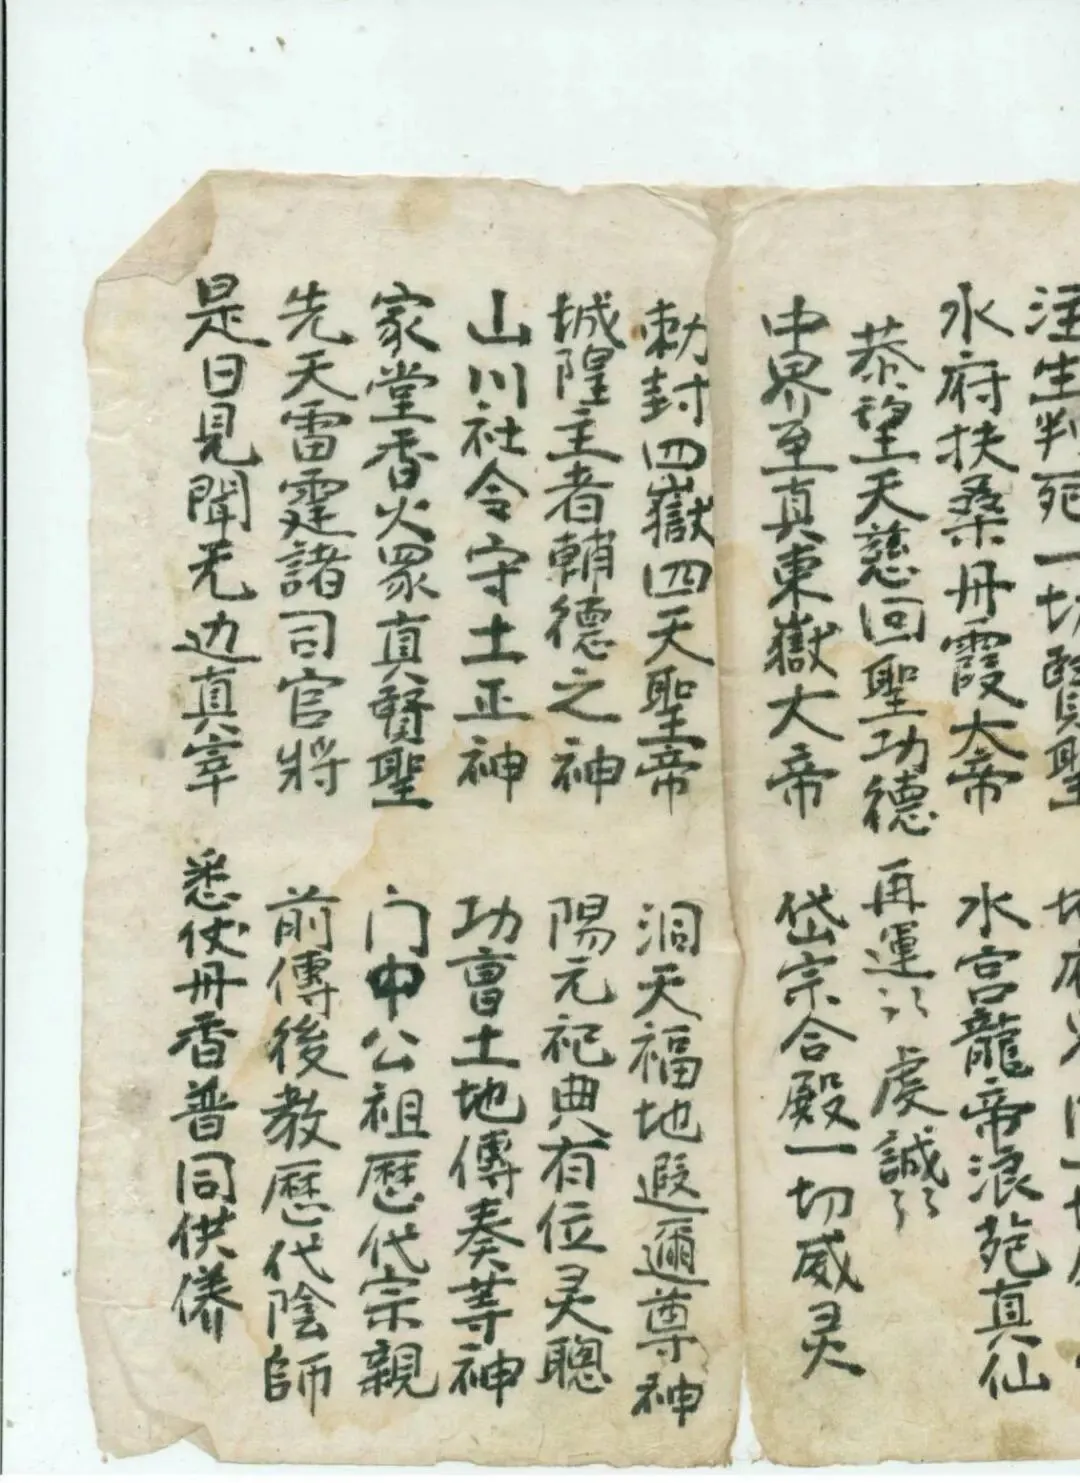 注生判死一切賢聖 地府
水府扶桑丹霞大帝 水宮龍帝浪苑真仙
恭望天慈回聖功德 再運㣺 虔誠㣺
中界至真東嶽大帝 岱宗合殿一切威灵
勅封四嶽四天聖帝 洞天福地遐邇尊神
城隍主者輔德之神 陽元祀典有位灵聰
山川社令守土正神 功曺土地傳奏等神
家堂香火眾真賢聖 门中公祖歷代宗親
先天雷霆諸司官將 前傳後教歷代陰師
是日見聞无边真宰 悉仗丹香普同供養